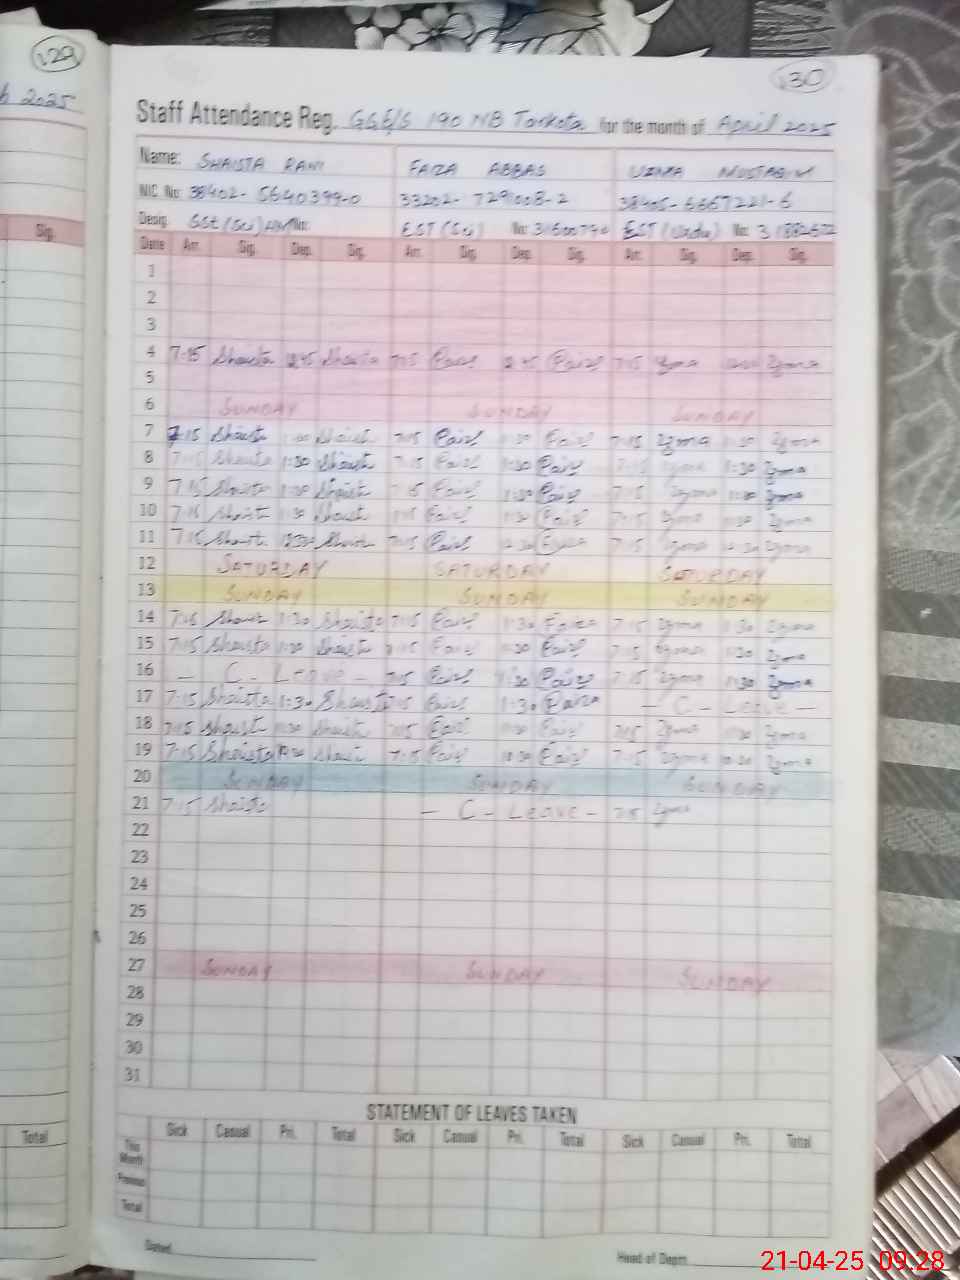 129
2025
Sig.
Total
130
Staff Attendance Reg. GGE/S 190 NB Tarkota for the month of April 2025
Name: SHAISTA RANI FAIZA ABBAS UZMA MUSTAQIM
NIC No: 38402-5640399-0 33202-7291008-2 38405-6667221-6
Desig. GSt (Sci) No: EST (Sci) No: 31600790 EST (Urdu) No: 31882672
Date Arr. Sig. Dep. Sig. Arr. Sig. Dep. Sig. Arr. Sig. Dep. Sig.
1
2
3
4 7:15 Shaista 12:45 Shaista 7:15 Faiz 12:45 Faiz 7:15 Uzma Uzma
5
6 SUNDAY SUNDAY SUNDAY
7 7:15 Shaista Shaista 7:15 Faiz 1:30 Faiz 7:15 Uzma 1:30 Uzma
8 7:15 Shaista 1:30 Shaista 7:15 Faiz 1:30 Faiz 7:15 Uzma 1:30 Uzma
9 7:15 Shaista 1:30 Shaista 7:15 Faiz 1:30 Faiz 7:15 Uzma 1:30 Uzma
10 7:15 Shaista 1:30 Shaista 7:15 Faiz 1:30 Faiz 7:15 Uzma 1:30 Uzma
11 7:15 Shaista 12:30 Shaista 7:15 Faiz 12:30 Faiza 7:15 Uzma 12:30 Uzma
12 SATURDAY SATURDAY SATURDAY
13 SUNDAY SUNDAY SUNDAY
14 7:15 Shaista 1:30 Shaista 7:15 Faiz 1:30 Faiza 7:15 Uzma 1:30 Uzma
15 7:15 Shaista 1:30 Shaista 7:15 Faiz 1:30 Faiz 7:15 Uzma 1:30 Uzma
16 - C - Leave - 7:15 Faiz 1:30 Faiz 7:15 Uzma 1:30 Uzma
17 7:15 Shaista 1:30 Shaista 7:15 Faiz 1:30 Faiza - C - Leave -
18 7:15 Shaista Shaista 7:15 Faiz Faiz 7:15 Uzma Uzma
19 7:15 Shaista 10:30 Shaista 7:15 Faiz 10:30 Faiz 7:15 Uzma 10:30 Uzma
20 SUNDAY SUNDAY SUNDAY
21 7:15 Shaista - C - Leave - 7:15 Uzma
22
23
24
25
26
27 SUNDAY SUNDAY SUNDAY
28
29
30
31
STATEMENT OF LEAVES TAKEN
Sick Casual Pri. Total Sick Casual Pri. Total Sick Casual Pri. Total
This Month
Previous
Total
Dated
Head of Deptt.
21-04-25 09:28